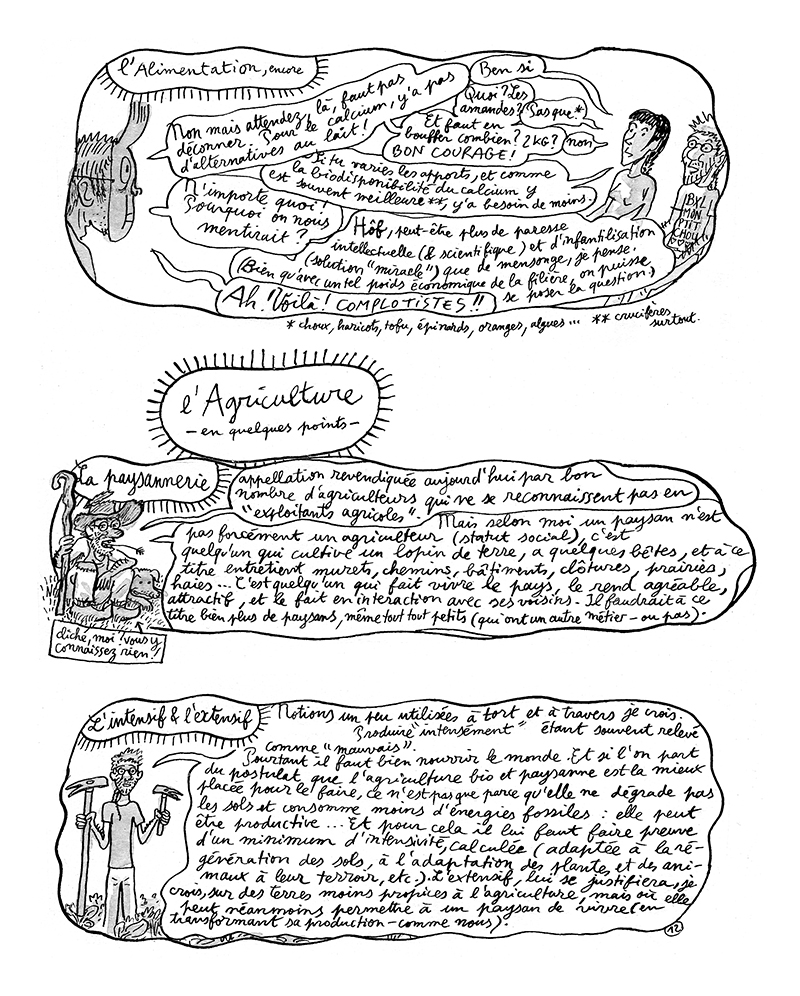 l'Alimentation, encore
Non mais attendez, là, faut pas
déconner. Pour le calcium, y'a pas
d'alternatives au lait !
Ben si
Quoi ? Les
amandes ?
Pas que.*
Et faut en
bouffer combien ? 2 kg ?
BON COURAGE !
non
Si tu varies les apports, et comme
la biodisponibilité du calcium y
est souvent meilleure**, y'a besoin de moins.
N'importe quoi !
Pourquoi on nous
mentirait ?
Hôf, peut-être plus de paresse
intellectuelle (& scientifique) et d'infantilisation
(solution "miracle") que de mensonge, je pense.
(Bien qu'avec un tel poids économique de la filière, on puisse
se poser la question.)
Ah ! Voilà ! COMPLOTISTES !!
BXL
MON
PTIT
CHOU
* choux, haricots, tofu, épinards, oranges, algues... ** crucifères
surtout.
l'Agriculture
- en quelques points -
La paysannerie
appellation revendiquée aujourd'hui par bon
nombre d'agriculteurs qui ne se reconnaissent pas en
"exploitants agricoles".
Mais selon moi un paysan n'est
pas forcément un agriculteur (statut social), c'est
quelqu'un qui cultive un lopin de terre, a quelques bêtes, et à ce
titre entretient murets, chemins, bâtiments, clôtures, prairies,
haies... C'est quelqu'un qui fait vivre le pays, le rend agréable,
attractif, et le fait en interaction avec ses voisins. Il faudrait à ce
titre bien plus de paysans, même tout tout petits (qui ont un autre métier - ou pas).
cliché, moi ? vous y
connaissez rien !
L'intensif & l'extensif
Notions un peu utilisées à tort et à travers je crois.
Produire "intensément" étant souvent relevé
comme "mauvais".
Pourtant il faut bien nourrir le monde. Et si l'on part
du postulat que l'agriculture bio et paysanne est la mieux
placée pour le faire, ce n'est pas que parce qu'elle ne dégrade pas
les sols et consomme moins d'énergies fossiles : elle peut
être productive... Et pour cela il lui faut faire preuve
d'un minimum d'intensivité, calculée (adaptée à la ré-
génération des sols, à l'adaptation des plantes et des ani-
maux à leur terroir, etc.). L'extensif, lui, se justifiera, je
crois, sur des terres moins propices à l'agriculture, mais où elle
peut néanmoins permettre à un paysan de vivre (en
transformant sa production - comme nous).
12